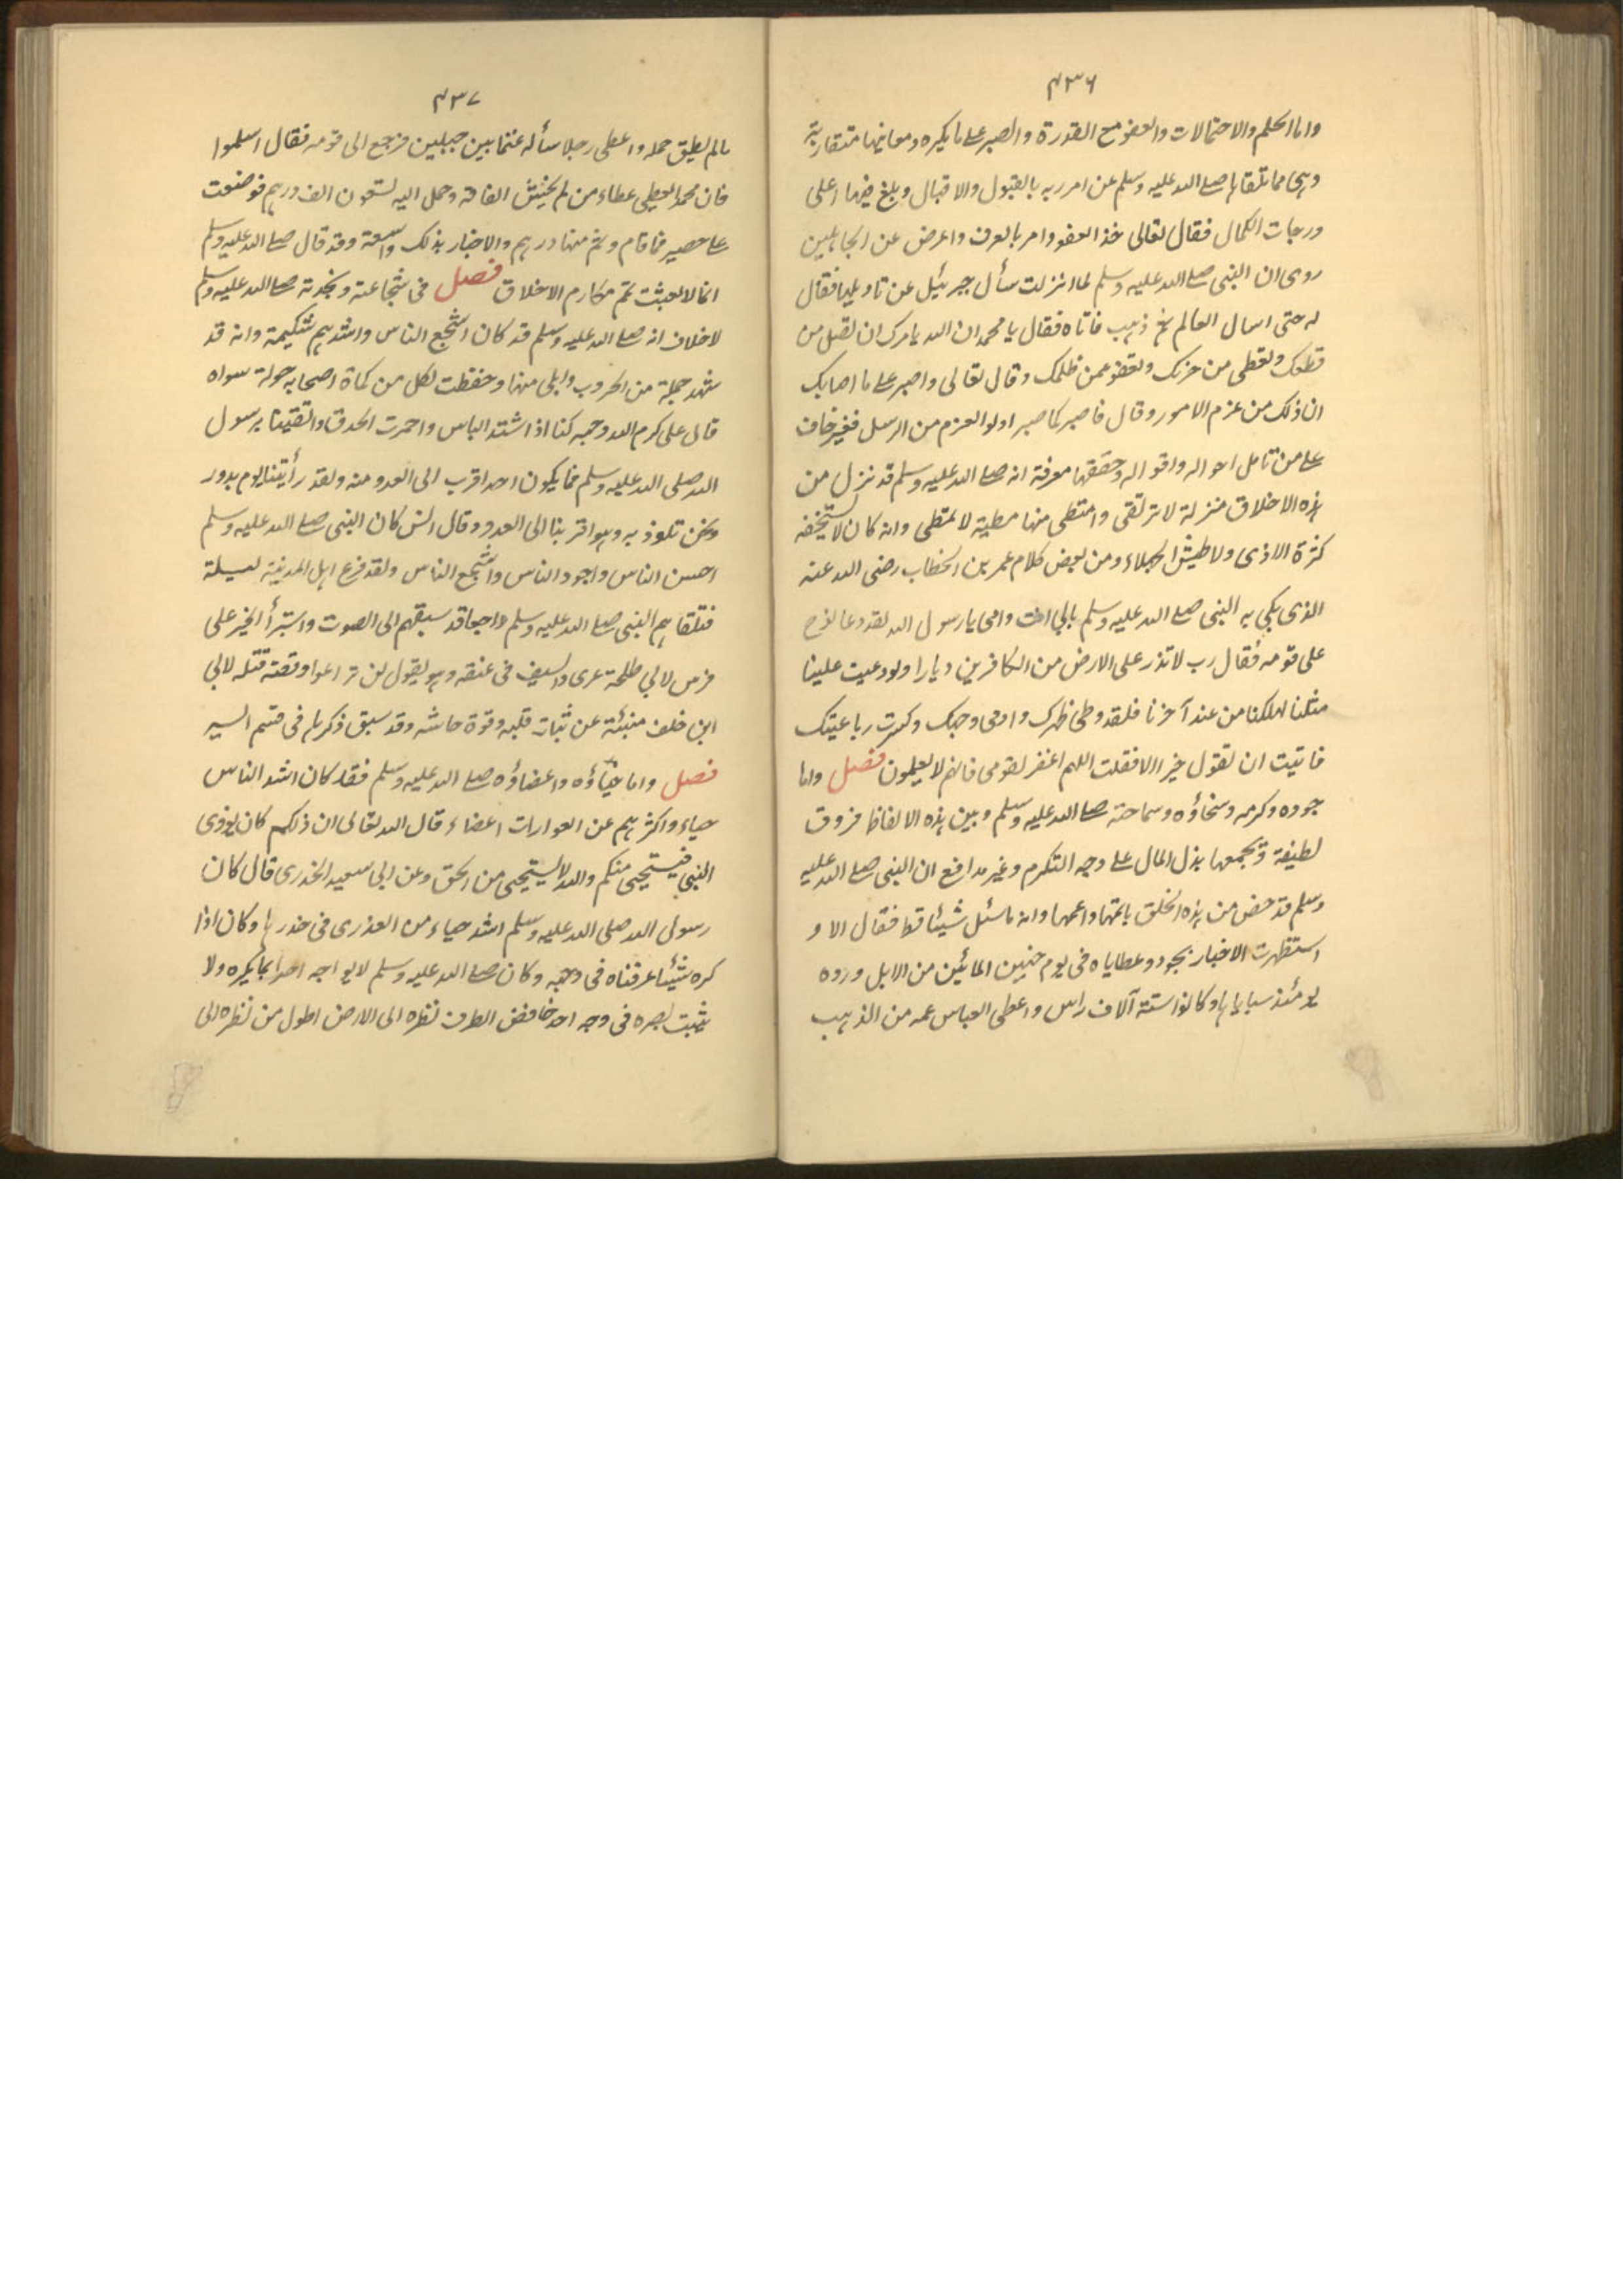 ٤٣٦
واما الحلم والاحتمالات والعفو مع القدرة والصبر على ما يكره ومعانيها متقاربة
وهي مما تلقاها صلى الله عليه وسلم عن امر ربه بالقبول والاقبال وبلغ فيها اعلى
درجات الكمال فقال تعالى خذ العفو وامر بالعرف واعرض عن الجاهلين
روى ان النبي صلى الله عليه وسلم لما انزلت سأل جبرئيل عن تاويلها فقال
له حتى اسال العالم ثم ذهب فاتاه فقال يا محمد ان الله يامرك ان تصل من
قطعك وتعطى من حرمك وتعفو عمن ظلمك وقال تعالى واصبر على ما اصابك
ان ذلك من عزم الامور وقال فاصبر كما صبر اولوا العزم من الرسل فغير خاف
على من تامل احواله واقواله وحققها معرفة انه صلى الله عليه وسلم قد نزل من
هذه الاخلاق منزلة لا ترتقى وامتطى منها مطية لا تمتطى وانه كان لا تستخفه
كثرة الاذى ولا طيش الجهلاء ومن بعض كلام عمر بن الخطاب رضى الله عنه
الذى بكى به النبي صلى الله عليه وسلم بابي انت وامى يا رسول الله لقد دعا نوح
على قومه فقال رب لا تذر على الارض من الكافرين ديارا ولو دعيت علينا
مثلنا لهلكنا من عند آخرنا فلقد وطى ظهرك وادمى وجهك وكسرت رباعيتك
فابيت ان تقول خيرا الا فقلت اللهم اغفر لقومى فانهم لا يعلمون فصل واما
جوده وكرمه وسخاؤه وسماحته صلى الله عليه وسلم وبين هذه الالفاظ فروق
لطيفة وتجمعها بذل المال على وجه التكرم وغير مدافع ان النبي صلى الله عليه
وسلم قد خص من هذه الخلق باتمها واعمها وانه ما سئل شيئا قط فقال لا و
استظهرت الاخبار بجوده وعطاياه فى يوم حنين المائين من الابل ورده
يومئذ سباياها وكانوا ستة آلاف راس واعطى العباس عمه من الذهب
٤٣٧
ما لم يطق حمله واعطى رجلا سأله غنما بين جبلين فرجع الى قومه فقال اسلموا
فان محمدا يعطى عطاء من لم يخش الفاقة وحمل اليه تسعون الف درهم فوضعت
على حصير فما قام وثم منها درهم والاخبار بذلك واسعة وقد قال صلى الله عليه وسلم
انما بعثت لاتم مكارم الاخلاق فصل فى شجاعته ونجدته صلى الله عليه وسلم
لا خلاف انه صلى الله عليه وسلم قد كان اشجع الناس واشدهم شكيمة وانه قد
شهد جملة من الحروب وابلى منها وحفظت لكل من كماة اصحابه جولة سواه
قال على كرم الله وجهه كنا اذا اشتد الباس واحمرت الحدق واتقينا برسول
الله صلى الله عليه وسلم فما يكون احد اقرب الى العدو منه ولقد رأيتنا يوم بدر
ونحن نلوذ به وهو اقربنا الى العدو وقال انس كان النبي صلى الله عليه وسلم
احسن الناس واجود الناس واشجع الناس ولقد فزع اهل المدينة ليلة
فتلقاهم النبي صلى الله عليه وسلم راجعا قد سبقهم الى الصوت واستبرأ الخبر على
فرس لابي طلحة عرى والسيف فى عنقه وهو يقول لن تراعوا وقصة قتله لابي
ابن خلف منبئة عن ثبات قلبه وقوة جاشه وقد سبق ذكرها فى قسم السير
فصل واما حياؤه واغضاؤه صلى الله عليه وسلم فقد كان اشد الناس
حياء واكثرهم عن العوارات اغضاء قال الله تعالى ان ذلكم كان يؤذى
النبي فيستحيى منكم والله لا يستحيى من الحق وعن ابى سعيد الخدرى قال كان
رسول الله صلى الله عليه وسلم اشد حياء من العذرى فى خدرها وكان اذا
كره شيئا عرفناه فى وجهه وكان صلى الله عليه وسلم لا يواجه احدا بما يكره ولا
يثبت بصره فى وجه احد خافض الطرف نظره الى الارض اطول من نظره الى